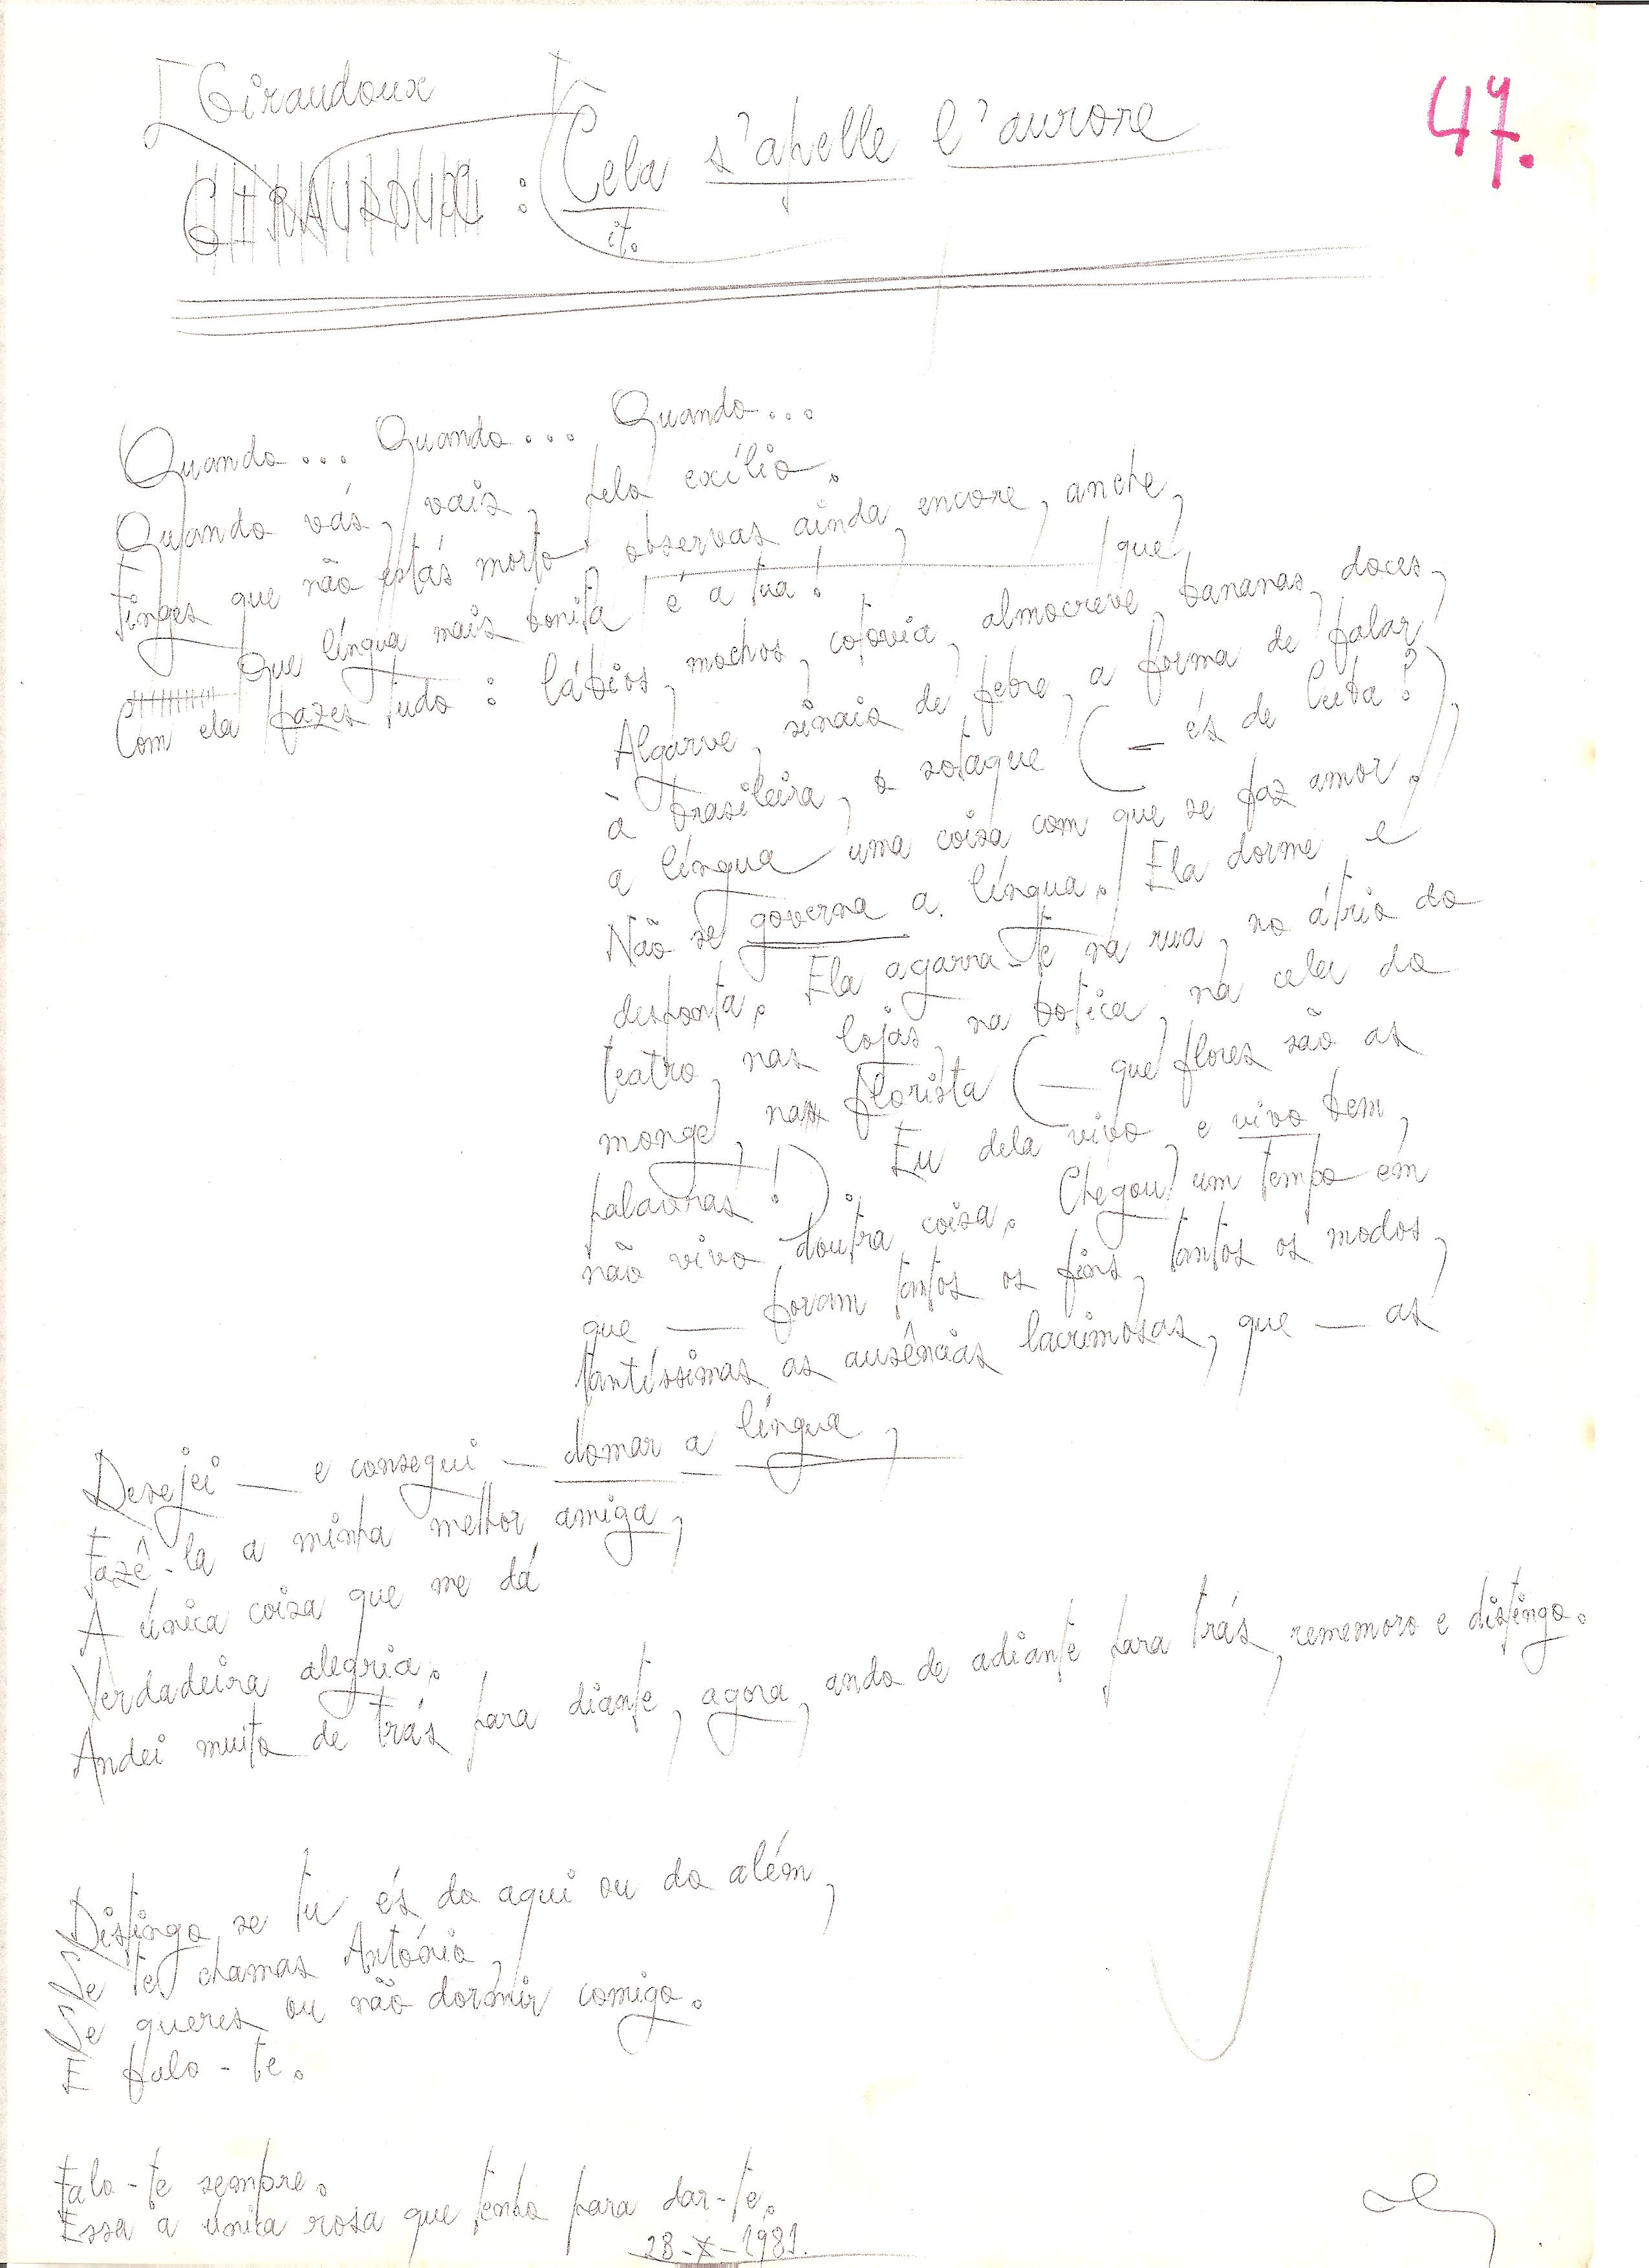 Giraudoux
47.
GIRAUDOUX : Cela s'apelle l'aurore
it.
Quando... Quando... Quando...
Quando vás, vais, pelo exílio.
Finges que não estás morto, observas ainda, encore, anche, que
Que língua mais bonita é a tua!
Com ela fazes tudo: lábios, mochos, cotovia, almocreve, bananas, doces,
Algarve, sinais de febre, a forma de falar
à brasileira, o sotaque (— és de Ceuta?),
a língua uma coisa com que se faz amor.
Não se governa a língua. Ela dorme e
desponta. Ela agarra-te na rua, no átrio do
teatro, nas lojas, na botica, na cela do
monge, na florista (— que flores são as
palavras!). Eu dela vivo, e vivo bem,
não vivo doutra coisa. Chegou um tempo em
que — foram tantos os fins, tantos os modos,
tantíssimas as ausências lacrimosas, que — as
Desejei — e consegui — domar a língua,
Fazê-la a minha melhor amiga,
A única coisa que me dá
Verdadeira alegria.
Andei muito de trás para diante, agora, ando de adiante para trás, rememoro e distingo.
Distingo se tu és do aqui ou do além,
Se te chamas António,
Se queres ou não dormir comigo.
E falo-te.
Falo-te sempre.
Essa a única rosa que tenho para dar-te.
28-X-1981.